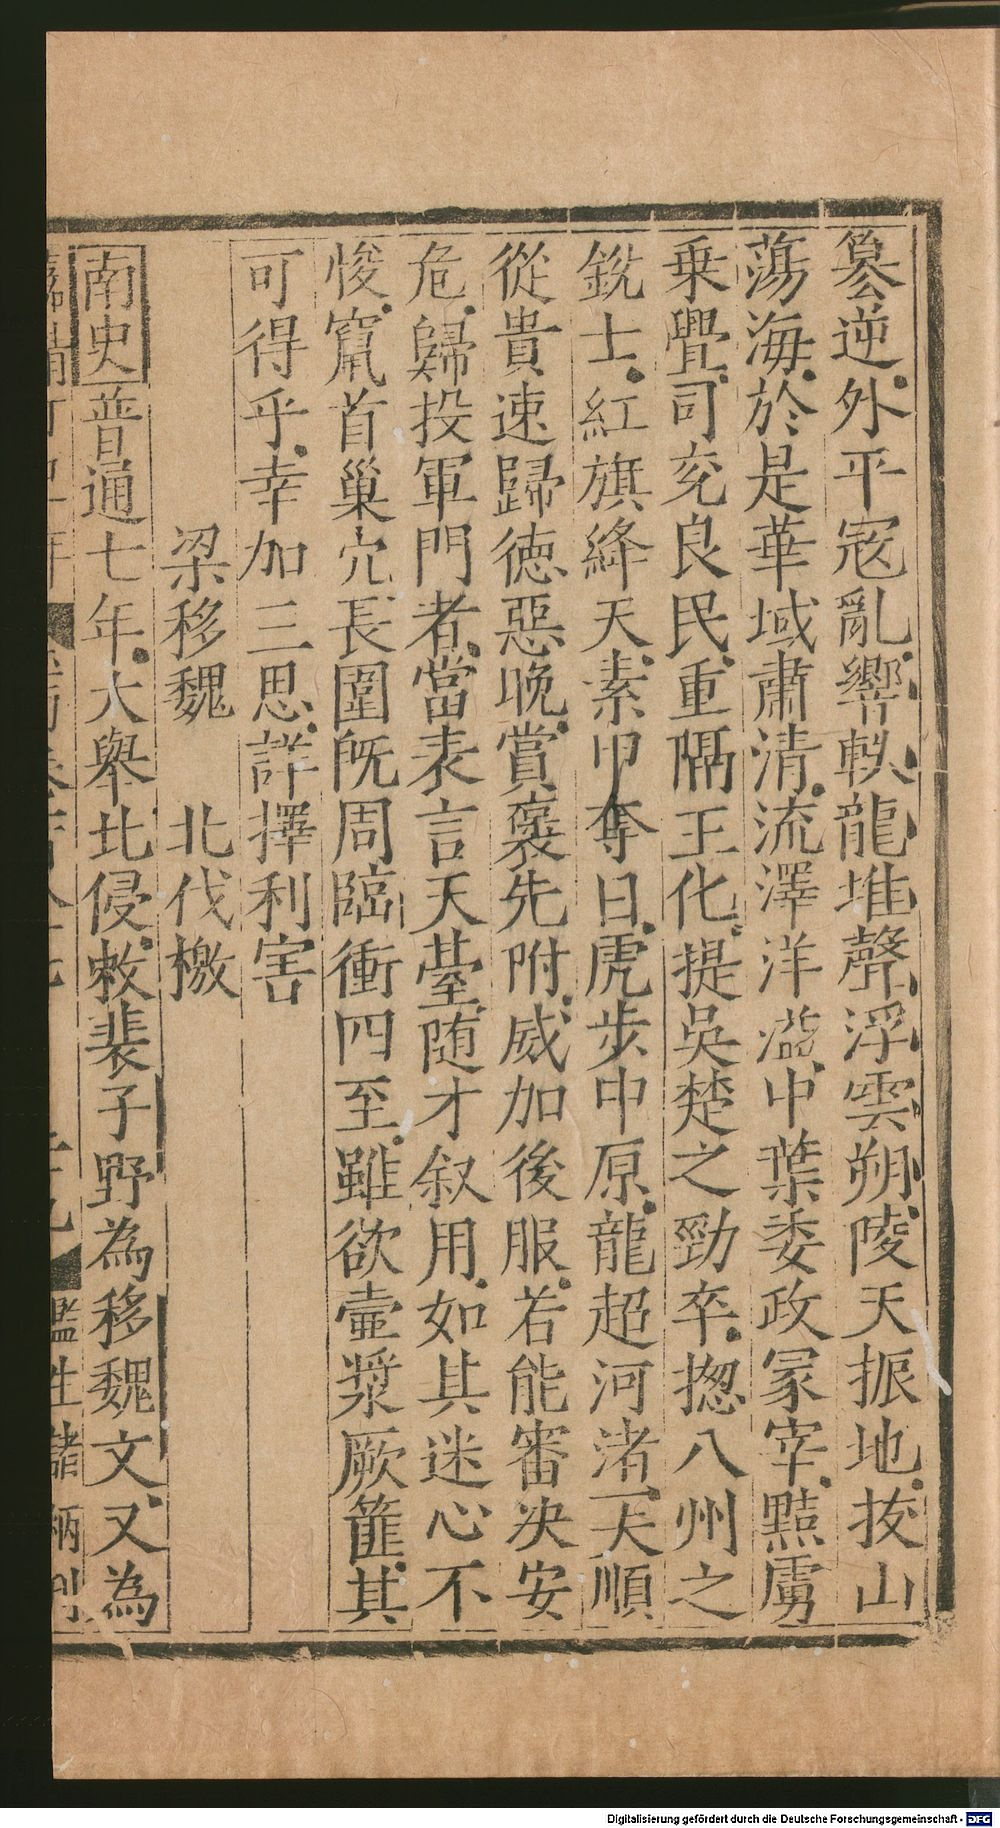 篡逆外平寇亂響軼龍堆聲浮雲朔陵天振地拔山
蕩海於是華域肅清流澤洋溢中葉委政冢宰黠虜
乗舋司兖良民重隔王化提吳楚之勁卒摠八州之
銳士紅旗絳天素甲奪日虎步中原龍超河渚夫順
從貴速歸徳惡晚賞褒先附威加後服若能審决安
危歸投軍門者當表言天臺随才叙用如其迷心不
悛竄首巢穴長圍旣周臨衝四至雖欲壷漿厥篚其
可得乎幸加三思詳擇利害
梁移魏　北伐檄
南史普通七年大舉北侵敕裴子野為移魏文又為
Digitalisierung gefördert durch die Deutsche Forschungsgemeinschaft - DFG